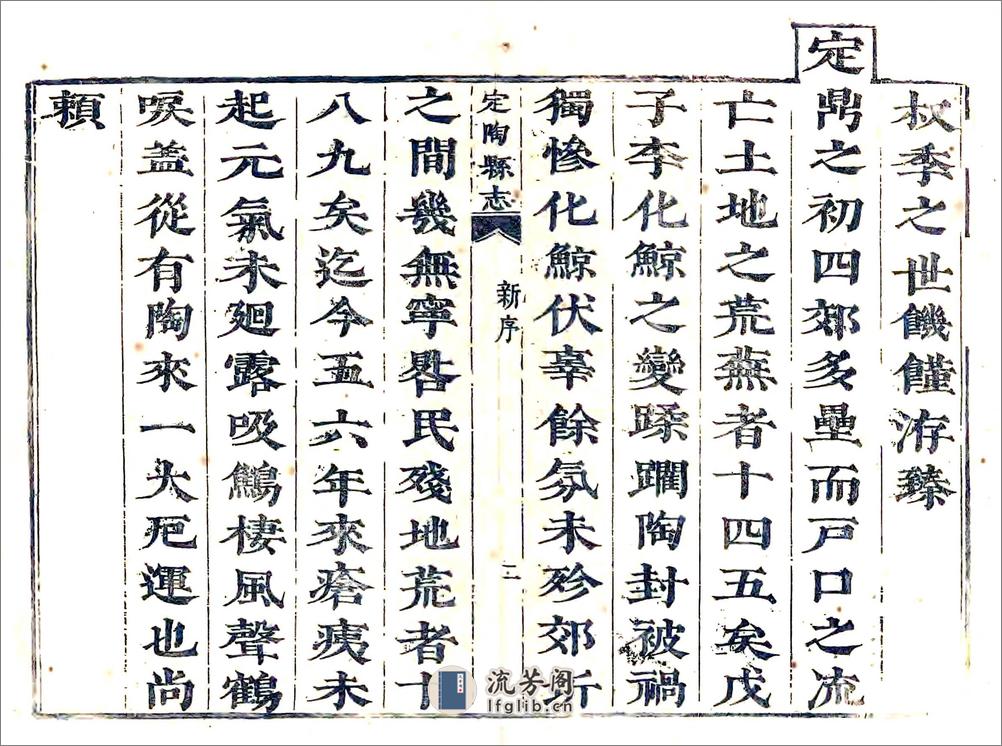 叔季之世饑饉洊臻
定鼎之初四郊多壘而戸口之流
亡土地之荒蕪者十四五矣戊
子李化鯨之變蹂躪陶封被禍
獨慘化鯨伏辜餘氛未殄郊圻
定陶縣志 新序 二
之間幾無寧晷民殘地荒者十
八九矣迄今五六年來瘡痍未
起元氣未廻露吸鷦棲風聲鶴
唳蓋從有陶來一大厄運也尚
賴
流芳阁
lfglib.cn